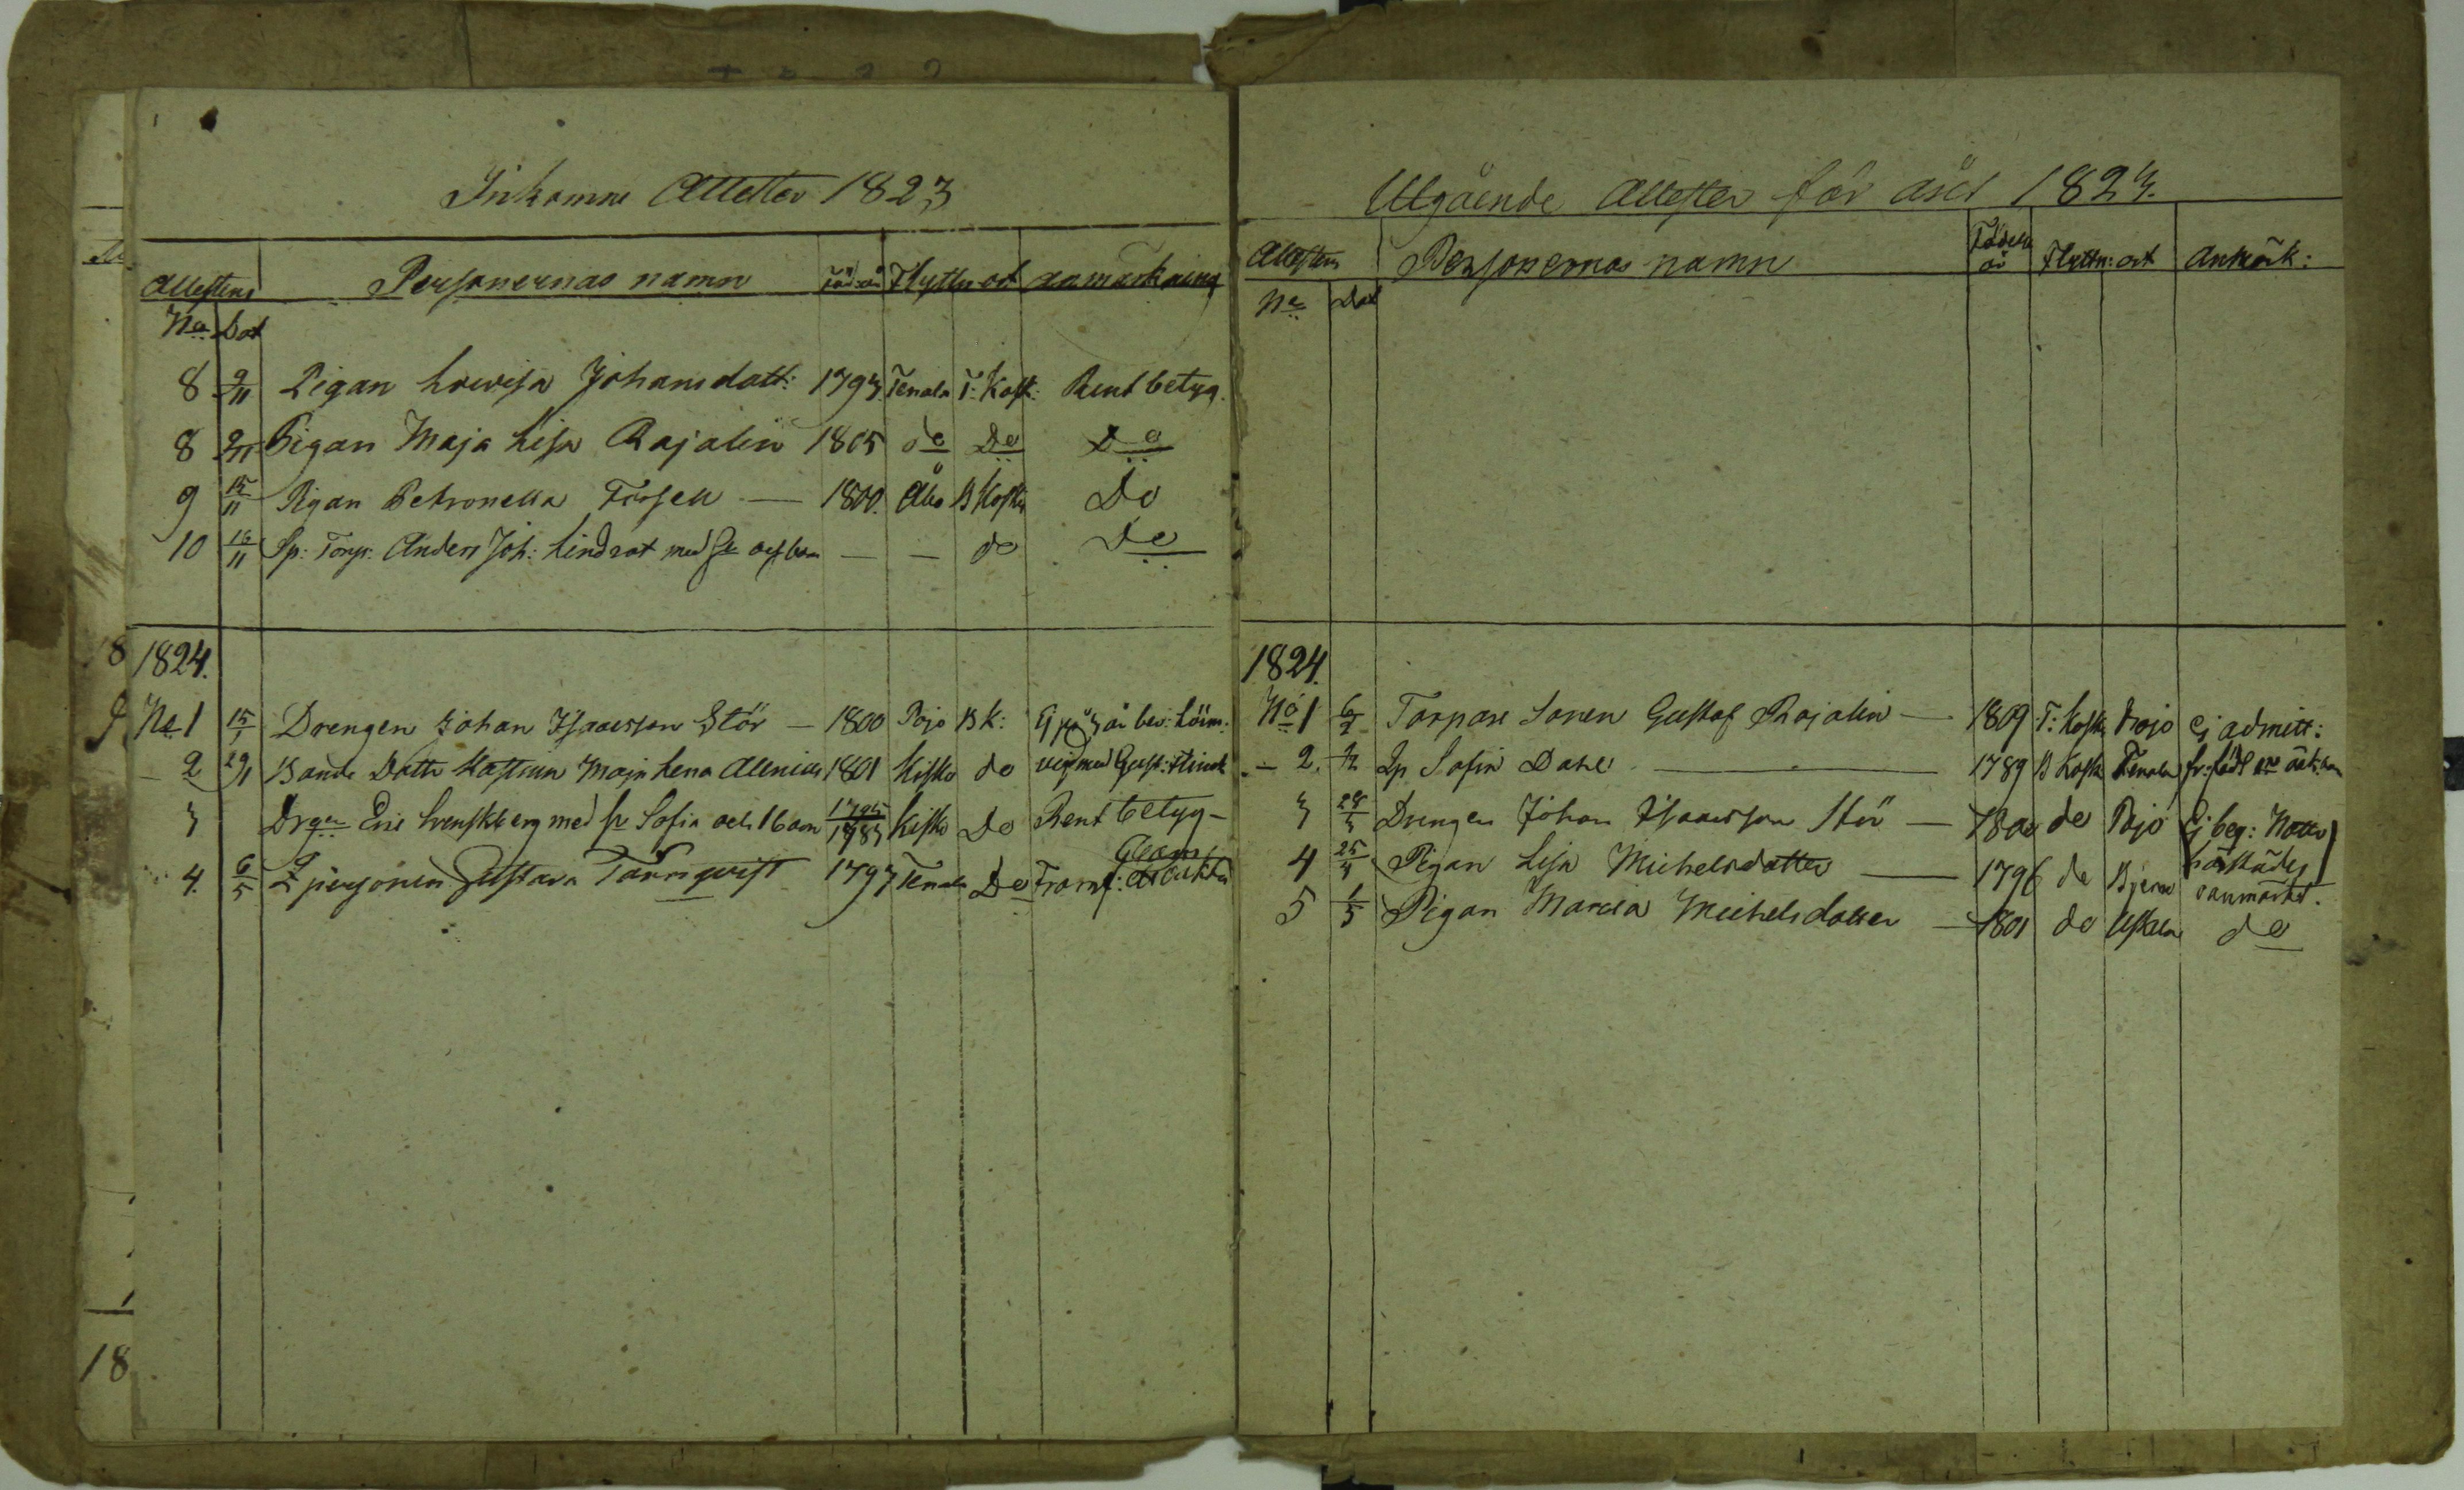 Inkomne Attester 1823
Attestens Personernas namn Föd: år Flyttn: ort anmärkning
No Dat
8 9/11 Pigan Lowisa Johansdott: 1793 Tenala T: Kosk: Rent betyg.
8 9/11 Pigan Maja Lisa Rajalin 1805 do Do Do
9 15/11 Pigan Petronella Forsell — 1800. Åbo B Koskis Do
10 16/11 Sp: Torp: Anders Joh: Lindrot med och barn — — do Do
1824.
No 1 15/1 Drengen Johan Isacsson Stör — 1800 Pojo B K: Ej på 3 år
2 29/1 Bonde Dottr Maja Lena Allenius 1801 Kisko do med Gust:
3 Drgen Eric Svenskberg med Sofia och 1 barn 1795/1783 Kisko Do Rent betyg-
4. 6/5 Gustava Törnqvist 1793 Tenala Do
18
Utgående Attester för året 1823.
Attestens Personernas namn Födelse år Flyttn: ort Anmärk:
No Dat
1824.
No 1 6/2 Torpare Sonen Gustaf Rajalin — 1809 T: Kosk Pojo ej admitt:
- 2. Qp Sofia Dahl — 1789 B Kosk Tenala
3 28/3 Drengen Johan Isacsson Stör — 1800 do Pojo Ej beg: Nattv
4 25/4 Pigan Lisa Michelsdotter — 1796 do Bjerno
5 1/5 Pigan Maria Michelsdotter — 1801 do Uskela do